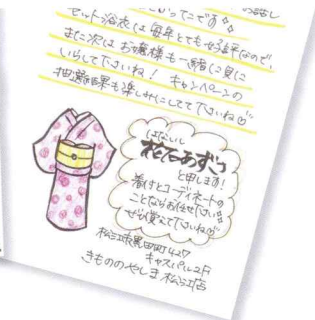 の話し
てこです
セット浴衣は毎年とても好評なので!
また次は お嬢様も一緒に見に
いらして下さいね! キャンペーンの
抽選結果も楽しみにしてて下さいね
はないし
花石あずさ
と申します!
着付とコーディネートの
ことならお任せ下さい
ぜひ覚えて下さいね
松江市黒田町427
キャスパル2F
きもののやしま 松江店